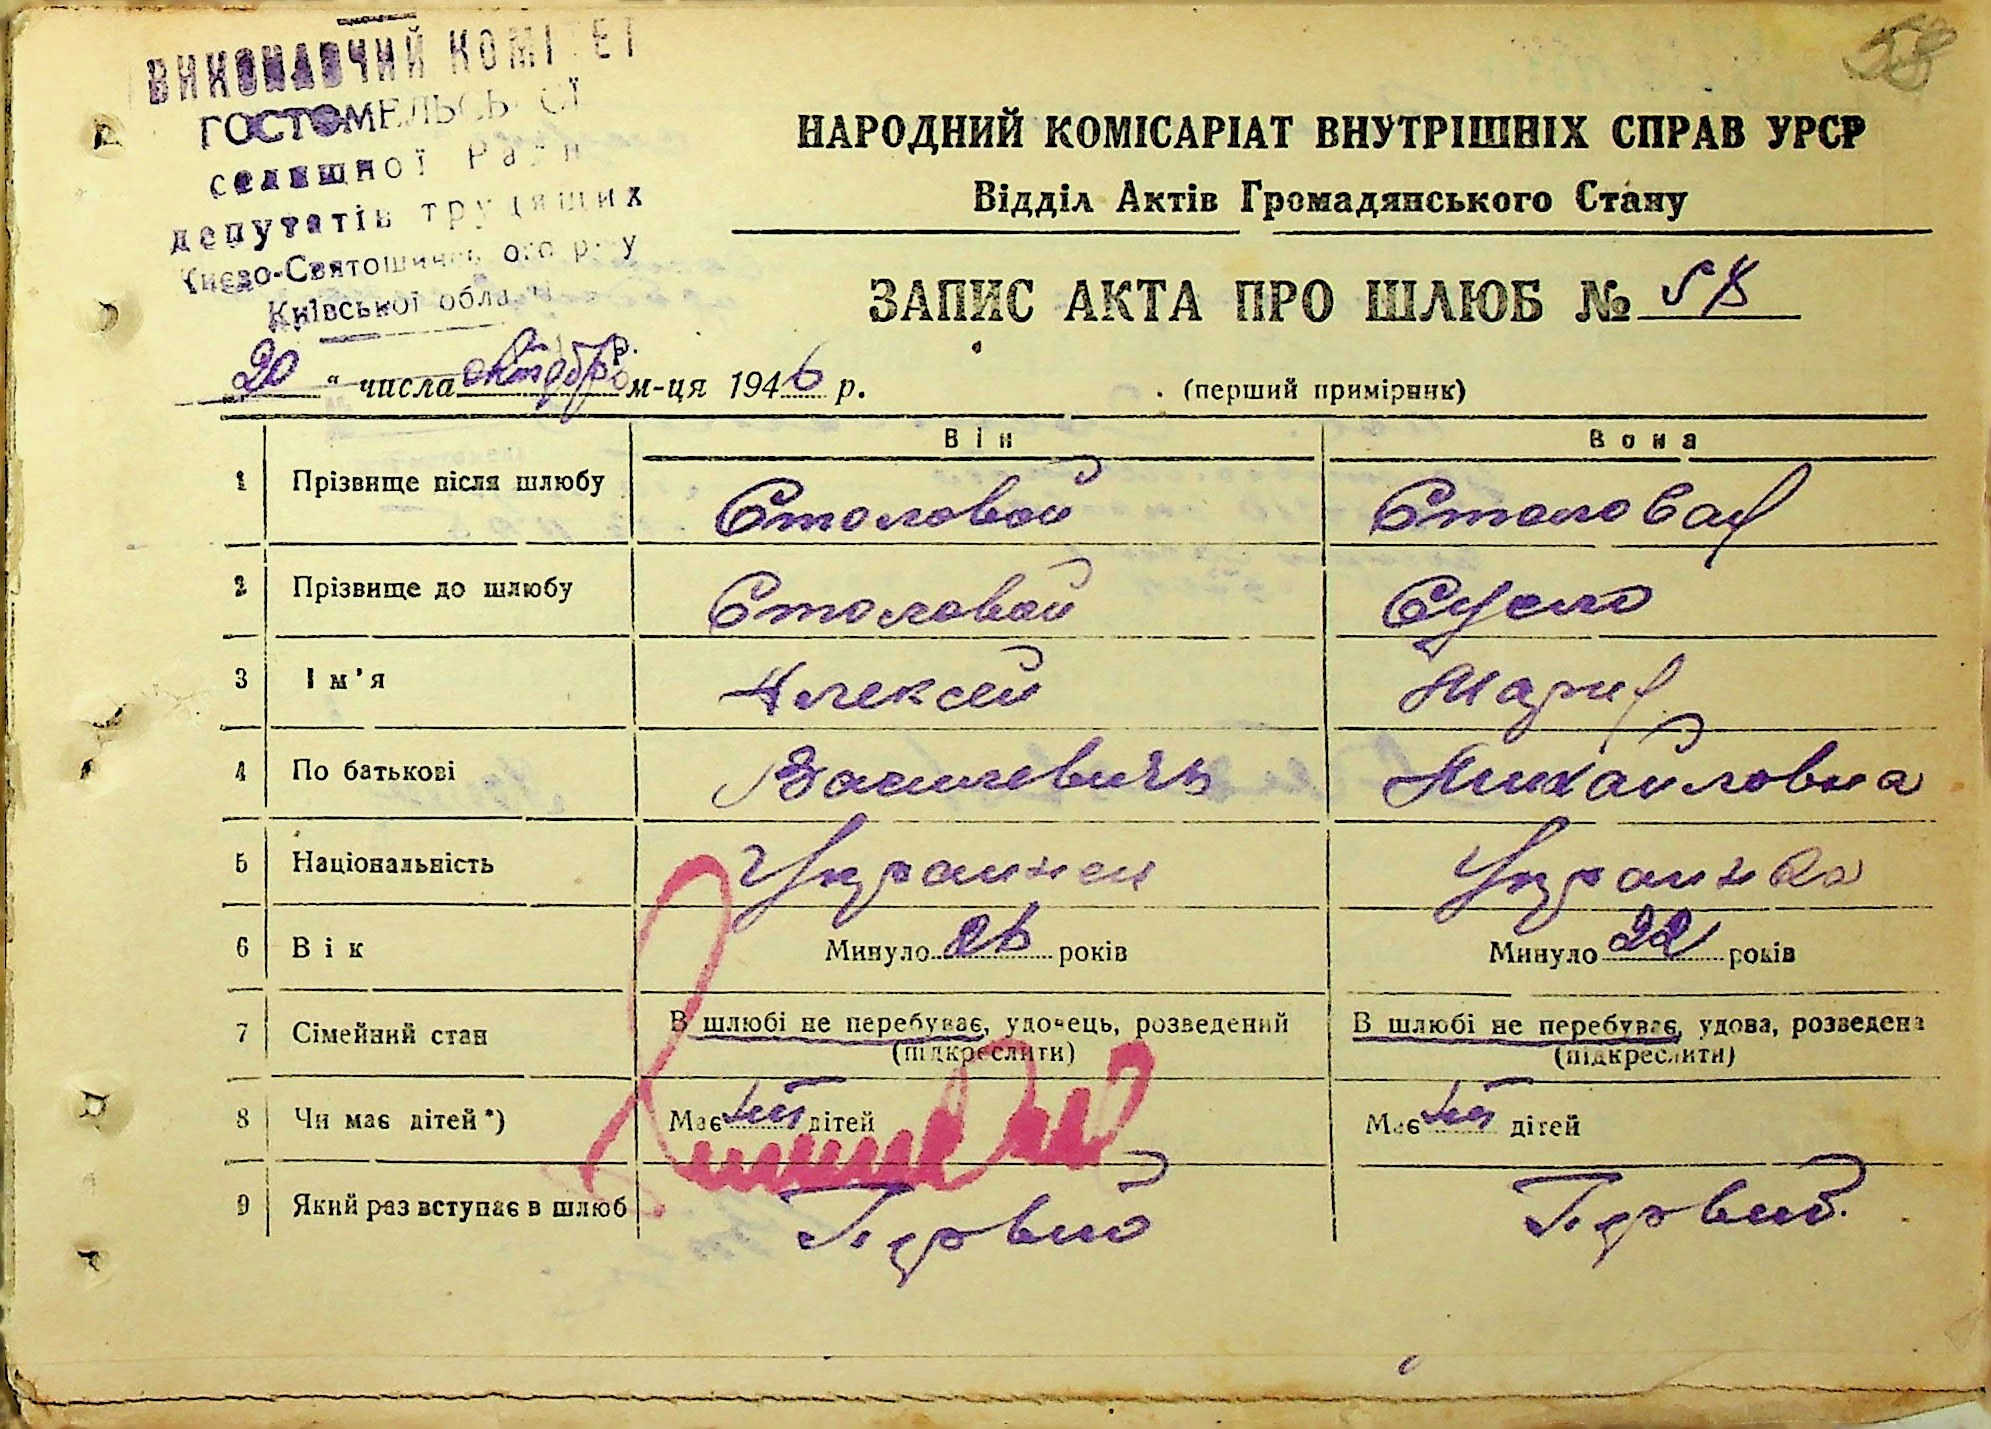 58
ВИКОНАВЧИЙ КОМІТЕТ
ГОСТОМЕЛЬСЬКОЇ
селищної Ради
депутатів трудящих
Києво-Святошинського р-ну
Київської області
НАРОДНИЙ КОМІСАРІАТ ВНУТРІШНІХ СПРАВ УРСР
Відділ Актів Громадянського Стану
ЗАПИС АКТА ПРО ШЛЮБ № 58
20 " числа октября м-ця 1946 р.
(перший примірник)
Він Вона
1 Прізвище після шлюбу Столовой Столовая
2 Прізвище до шлюбу Столовой Сусло
3 Ім'я Алексей Мария
4 По батькові Василевичь Михайловна
5 Національність Украинец Украинка
6 Вік Минуло 26 років Минуло 22 років
7 Сімейний стан В шлюбі не перебуває, удовець, розведений В шлюбі не перебуває, удова, розведена
(підкреслити) (підкреслити)
8 Чи має дітей *) Має дітей Має дітей
9 Який раз вступає в шлюб Первый Первый.